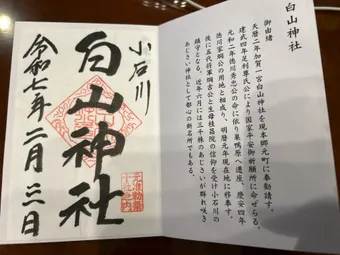 小石川
白山神社
令和七年二月三日
白山神社
御由緒
天暦二年加賀一宮白山神社を現本郷元町に奉勧請す。
建武四年足利尊氏公により国家平安御祈願所に命ぜらる。
元和二年徳川秀忠公の命に依り巣鴨原へ遷座、慶安四年
徳川家綱公の用地と相成り、明暦元年現在地に移奉す。
後に五代将軍綱吉公と生母桂昌院の信仰を受け小石川の
鎮守となる。近年六月には三千株のあじさいが群れ咲き
あじさい神社として都心の新名所でもある。